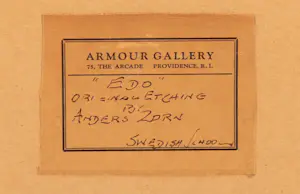 ARMOUR GALLERY
75, THE ARCADE PROVIDENCE, R. I.
"EDO"
ORIGINAL ETCHING
BY
ANDERS ZORN
SWEDISH SCHOOL